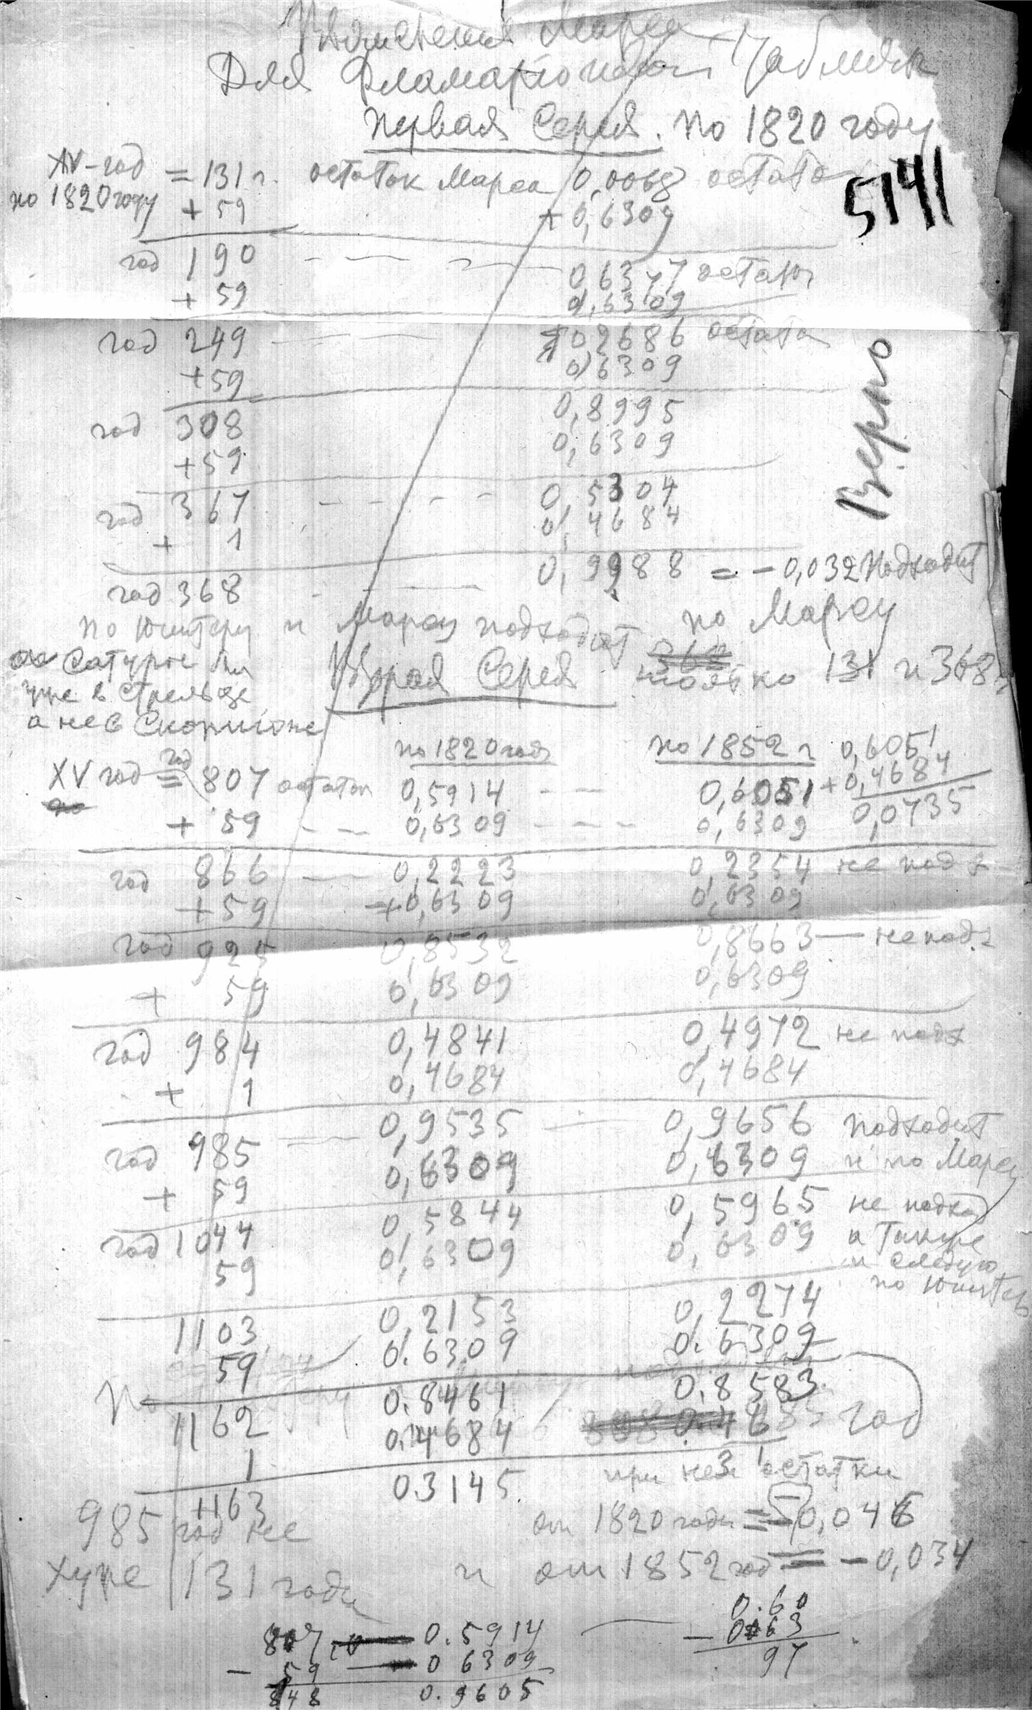 Марса
Для Фламарионовой Таблички
Первая Серия. По 1820 году
XV-год = 131 г. остаток Марса 0,0068 остато
по 1820 году + 59 + 0,6309
5141
год 190 0,6377 остаток
+ 59 0,6309
год 249 0,2686 остато
+59 0,6309
Верно
год 308 0,8995
+59 0,6309
год 367 0,5304
+ 1 0,4684
год 368 0,9988 = -0,032 подходит
по Юпитеру и Марсу подходят по Марсу
Сатурне
уже в Стрельце
а не в Скорпионе
Вторая Серия только 131 и 368
по 1820 года по 1852 г 0,6051
+0,4684
0,0735
XV год = 807 остаток 0,5914 0,6051
+ 59 0,6309 0,6309
год 866 0,2223 0,2354 не подх
+59 +0,6309 0,6309
год 925 0,8532 0,8663 — не подх
+ 59 0,6309 0,6309
год 984 0,4841 0,4972 не подх
+ 1 0,4684 0,4684
год 985 0,9535 0,9656 подходит
+ 59 0,6309 0,6309 и по Марсу
год 1044 0,5844 0,5965 не подход
59 0,6309 0,6309 а также
и следую
по Юпитер
1103 0,2153 0,2274
59 0.6309 0.6309
1162 0.8461 0.8583
1 0.4684 год
1163 03145. при ней остатки
985 год не от 1820 года = 0,046
хуже 131 года и от 1852 год = -0,034
807 — 0.5914
- 59 — 0 6309
848 0.9605
0.60
- 063
97